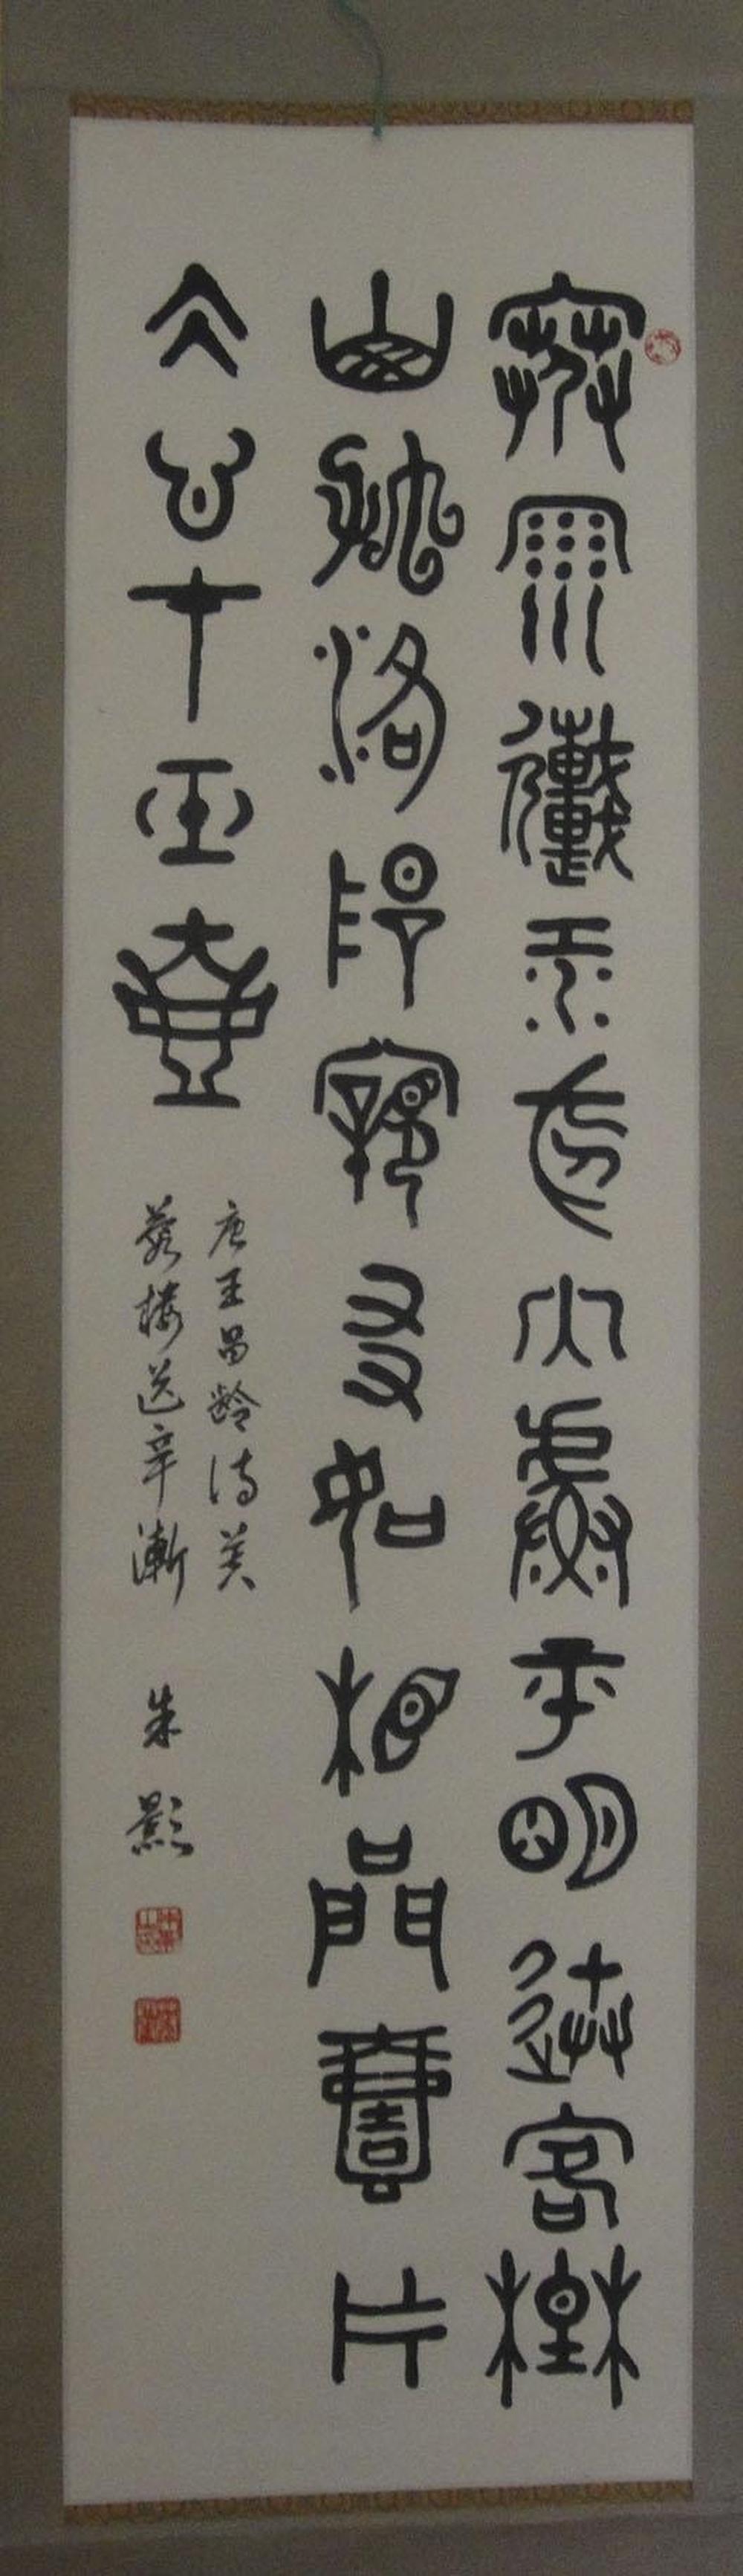 寒雨連江夜入吳平明送客楚
山孤洛陽親友如相問壹片
冰心在玉壺
唐王昌齡詩芙
蓉樓送辛漸
朱影